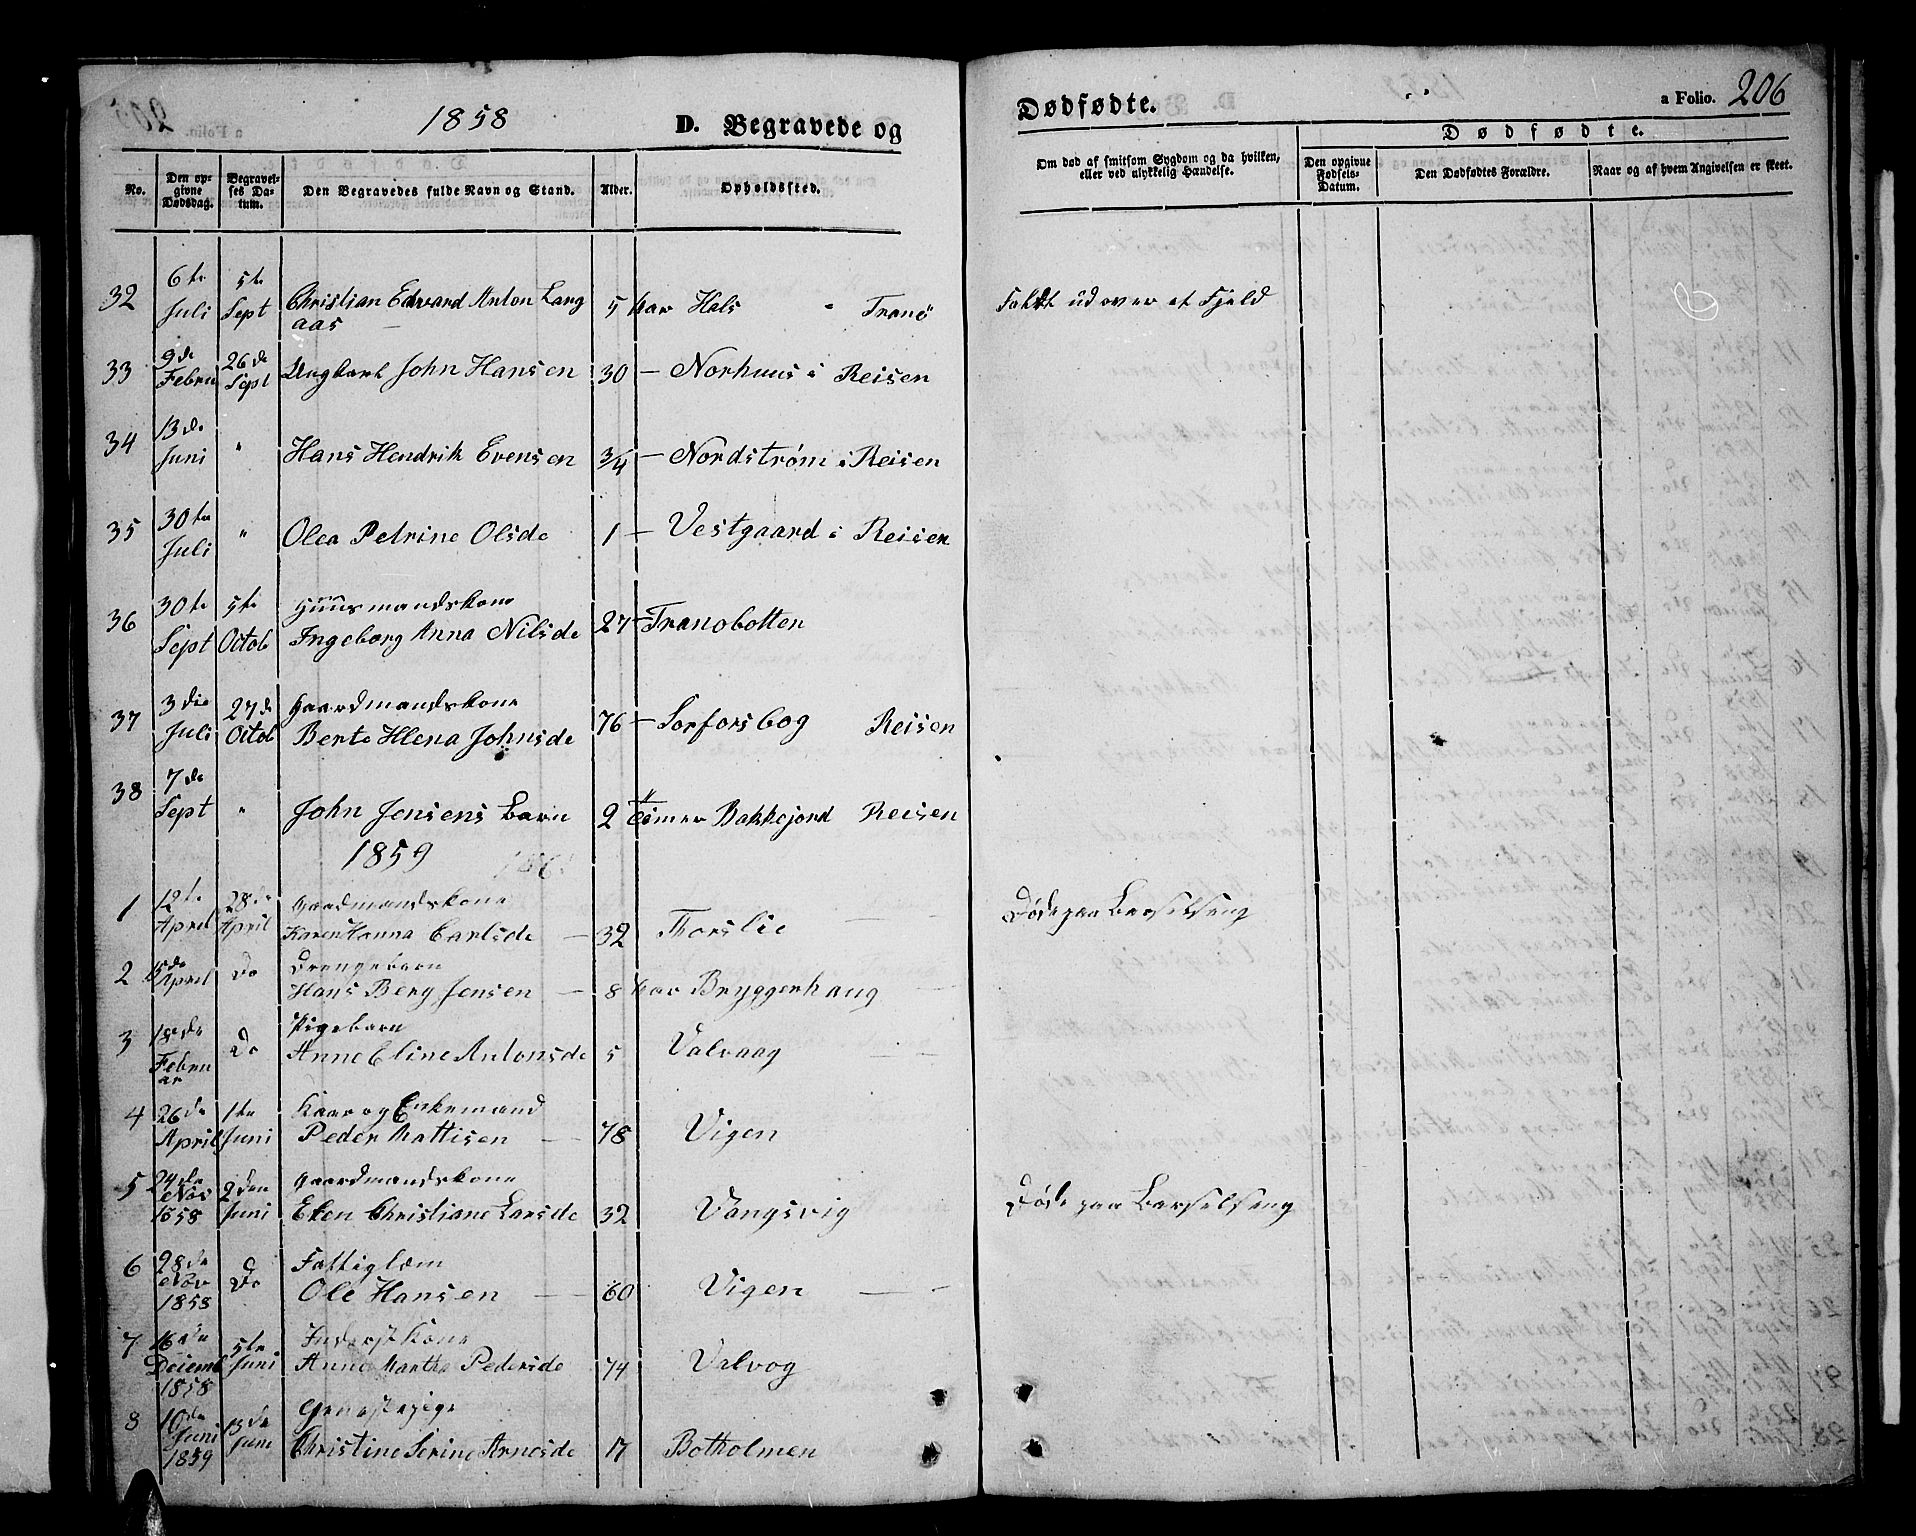 1858 D. Begravede og
Dødfødte. a Folio. 206
No. Den opgivne Dødsdag. Begravelses Datum. Den Begravedes fulde Navn og Stand. Alder. Opholdssted.
Om død af smitsom Sygdom og da hvilken, eller ved ulykkelig Hændelse. Dødfødte. Den opgivne Fødsels-Datum. Den Dødfødtes Forældre. Naar og af hvem Angivelsen er skeet.
32 6te Juli 5te Sept Christian Edvard Anton Langaas 5 Aar Hals Tranö Faldt udover et Fjeld
33 9de Febru 26de Sept Ungkarl John Hansen 30 — Norhuus i Reisen
34 13de Juni " Hans Hendrik Evensen 3/4 — Nordstrøm i Reisen
35 30te Juli " Olea Petrine Olsde 1 — Vestgaard i Reisen
36 30te Sept 5te Octob Huusmandskone
Ingeborg Anna Nilsde 27 — Tranobotten
37 3die Juli 27de Octob Gaardmandskone
Berte Hlena Johnsde 76 — Sorforsbog Reisen
38 7de Sept " John Jensens Barn 2 Timer Bakkejord Reisen
1859
1 12te April 28de April Gaardmandskone
Karen Hanna Carlsde — 32 Thorslie — Døde paa Barselseng
2 15de April Do Drengebarn
Hans Berg Jensen — 8 Aar Bryggerhaug —
3 18de Februar Do Pigebarn
Anne Eline Antonsde 5 Valvaag —
4 26de April 1te Juni Kaar og Enkemand
Peder Mattisen — 78 Vigen
5 24de Nov 1858 2den Juni Gaardmandskone
Elen Christiane Larsde 32 Vangsvig Døde paa Barselseng
6 28de Nov 1858 Do Fattiglem
Ole Hansen — 60 Vigen —
7 16de Decemb 1858 5te Juni Inderst Kone
Anna Martha Pedersde 74 Valvog
8 10de Juni 1859 13de Juni
Christine Serine Arnesde 17 Botholmen